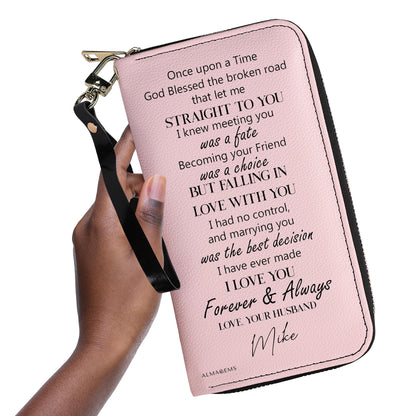 Once upon a Time
God Blessed the broken road
that let me
STRAIGHT TO YOU
I knew meeting you
was a fate
Becoming your Friend
was a choice
BUT FALLING IN
LOVE WITH YOU
I had no control,
and marrying you
was the best decision
I have ever made
I LOVE YOU
Forever & Always
LOVE, YOUR HUSBAND
Mike
ALMAGEMS